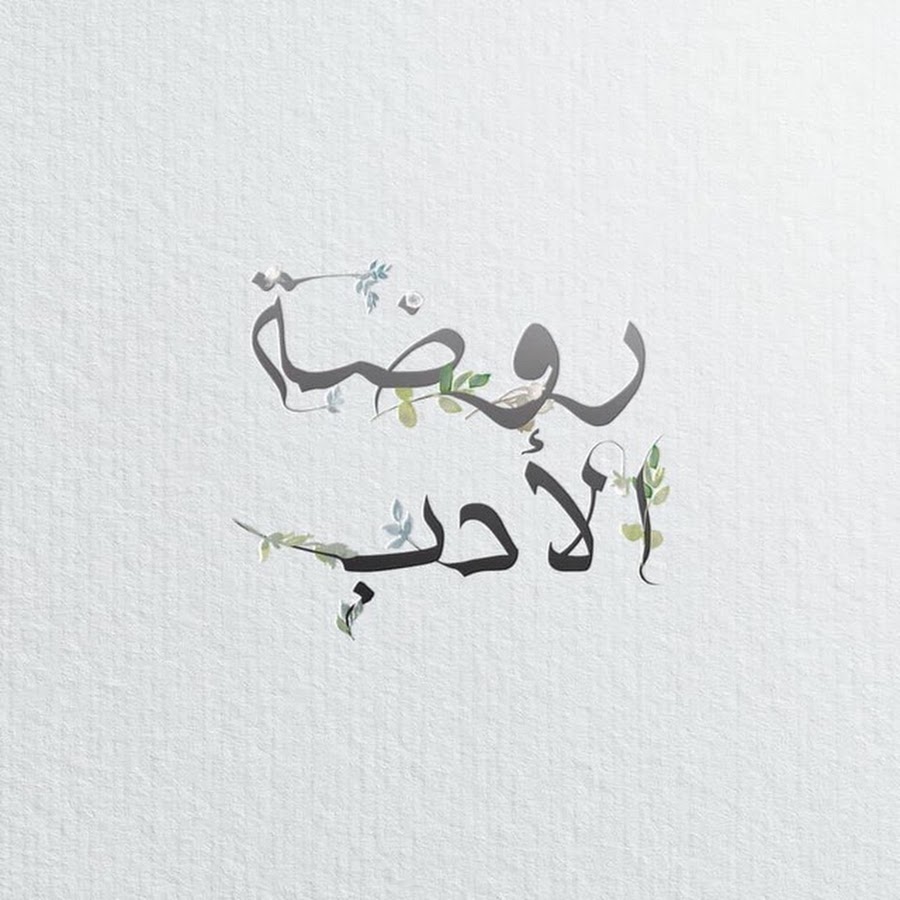 روضة
الأدب